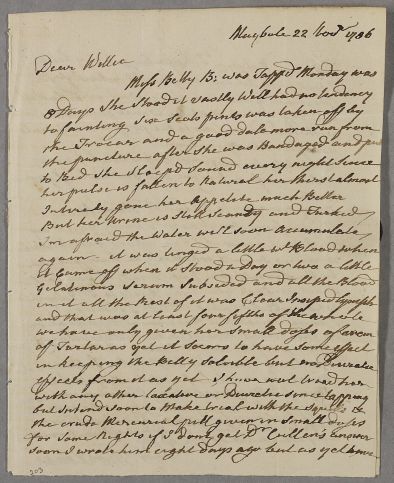 Maybole 22 Novr 1786
Dear Willie
Miss Betty B: was Tapp'd Monday was
8 Days She Stood it vastly Well had no tendency
to fainting Six Scots pints was taken off by
the Trocar and a good dale more run from
the puncture after She was Bandaged and put
to Bed She Sleep'd Sound every night Since
her pulse is fallen to Natural her thirst almost
Intirely gone her Appetite much Better
But her Urine is Still Scanty and Turbed
I'm afraid the Water will Soon Accumulate
again it was tinged a little wt Blood when
it Came off when it Stood a Day or two a little
Gelatinous Serum Subsided and all the Blood
in it all the Rest of it was Clear Insiped Lymph
and that was at least four fifths of the whole
we have only given her Small doses of Cream
of Tartar as yet it Seems to have Some effect
in keeping the Belly Soluble but no Diuretic
effects from it as yet I have not tried her
with any other laxative or Diuretic since tapping
but intend soon to make trial with the Squills &
the crude Mercurial pill given in Small doses
for Some Nights if I dont get Dr Cullen's answer
Soon I wrote him eight Days ago but as yet
203